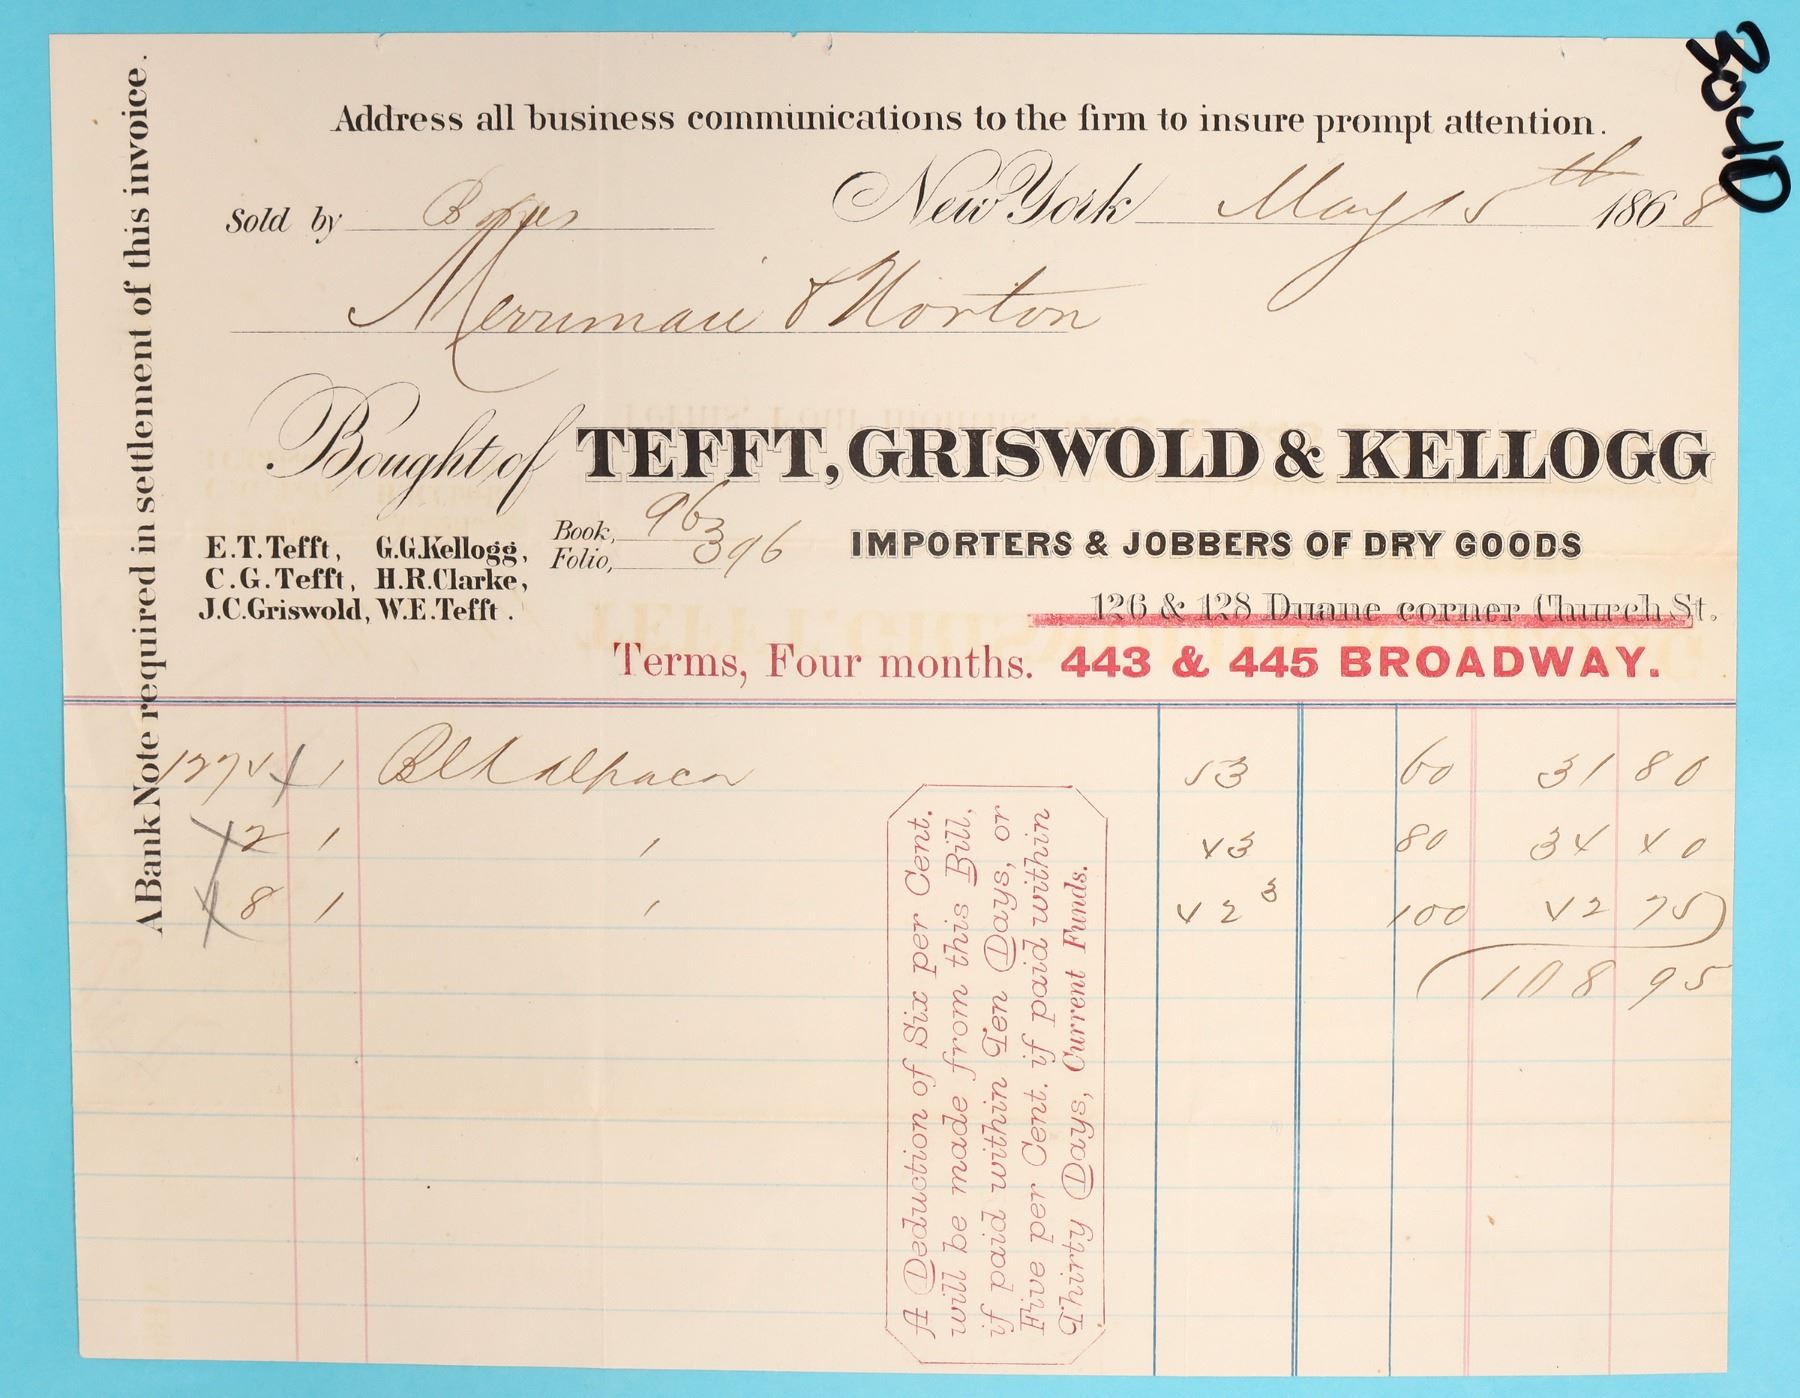 Address all business communications to the firm to insure prompt attention.
Sold by
New York May 15th 1868
Merriman & Norton
Bought of TEFFT, GRISWOLD & KELLOGG
Book, 96
Folio, 396
E.T. Tefft, G.G. Kellogg,
C.G. Tefft, H.R. Clarke,
J.C. Griswold, W.E. Tefft.
IMPORTERS & JOBBERS OF DRY GOODS
126 & 128 Duane corner Church St.
Terms, Four months. 443 & 445 BROADWAY.
A Bank Note required in settlement of this invoice.
1 Blk Alpaca 53 60 31 80
2 1 ' 43 80 34 40
8 1 ' 42 3 100 42 75
108 95
A Deduction of Six per Cent.
will be made from this Bill,
if paid within Ten Days, or
Five per Cent. if paid within
Thirty Days, Current Funds.